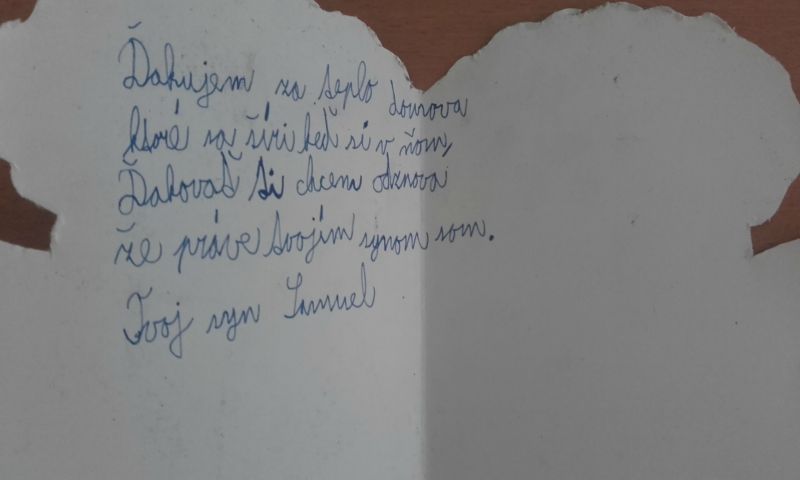 Ďakujem za teplo domova
ktoré sa šíri keď si v ňom,
Ďakovať ti chcem odznova
že práve tvojím synom som.
Tvoj syn Samuel